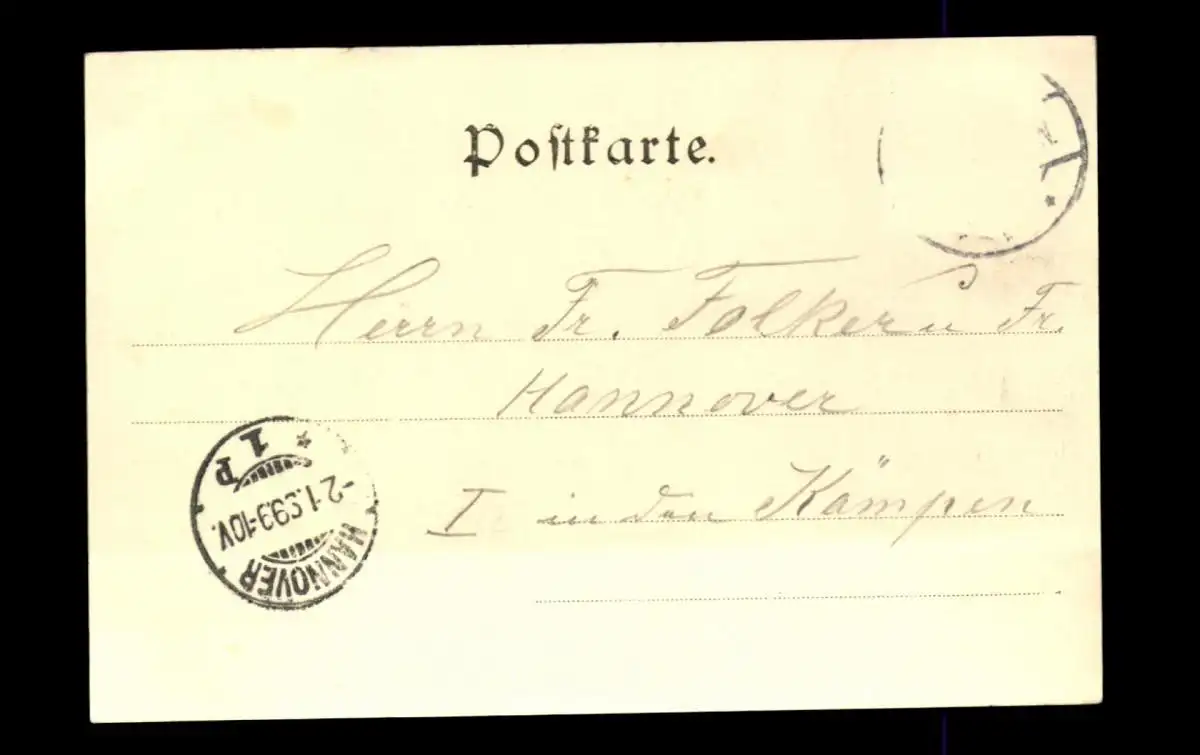 Postkarte.
Herrn Fr. Folker u Fr.
Hannover
I in den Kämpen
HANNOVER
-2.1.99.9-10V.
* 1 p